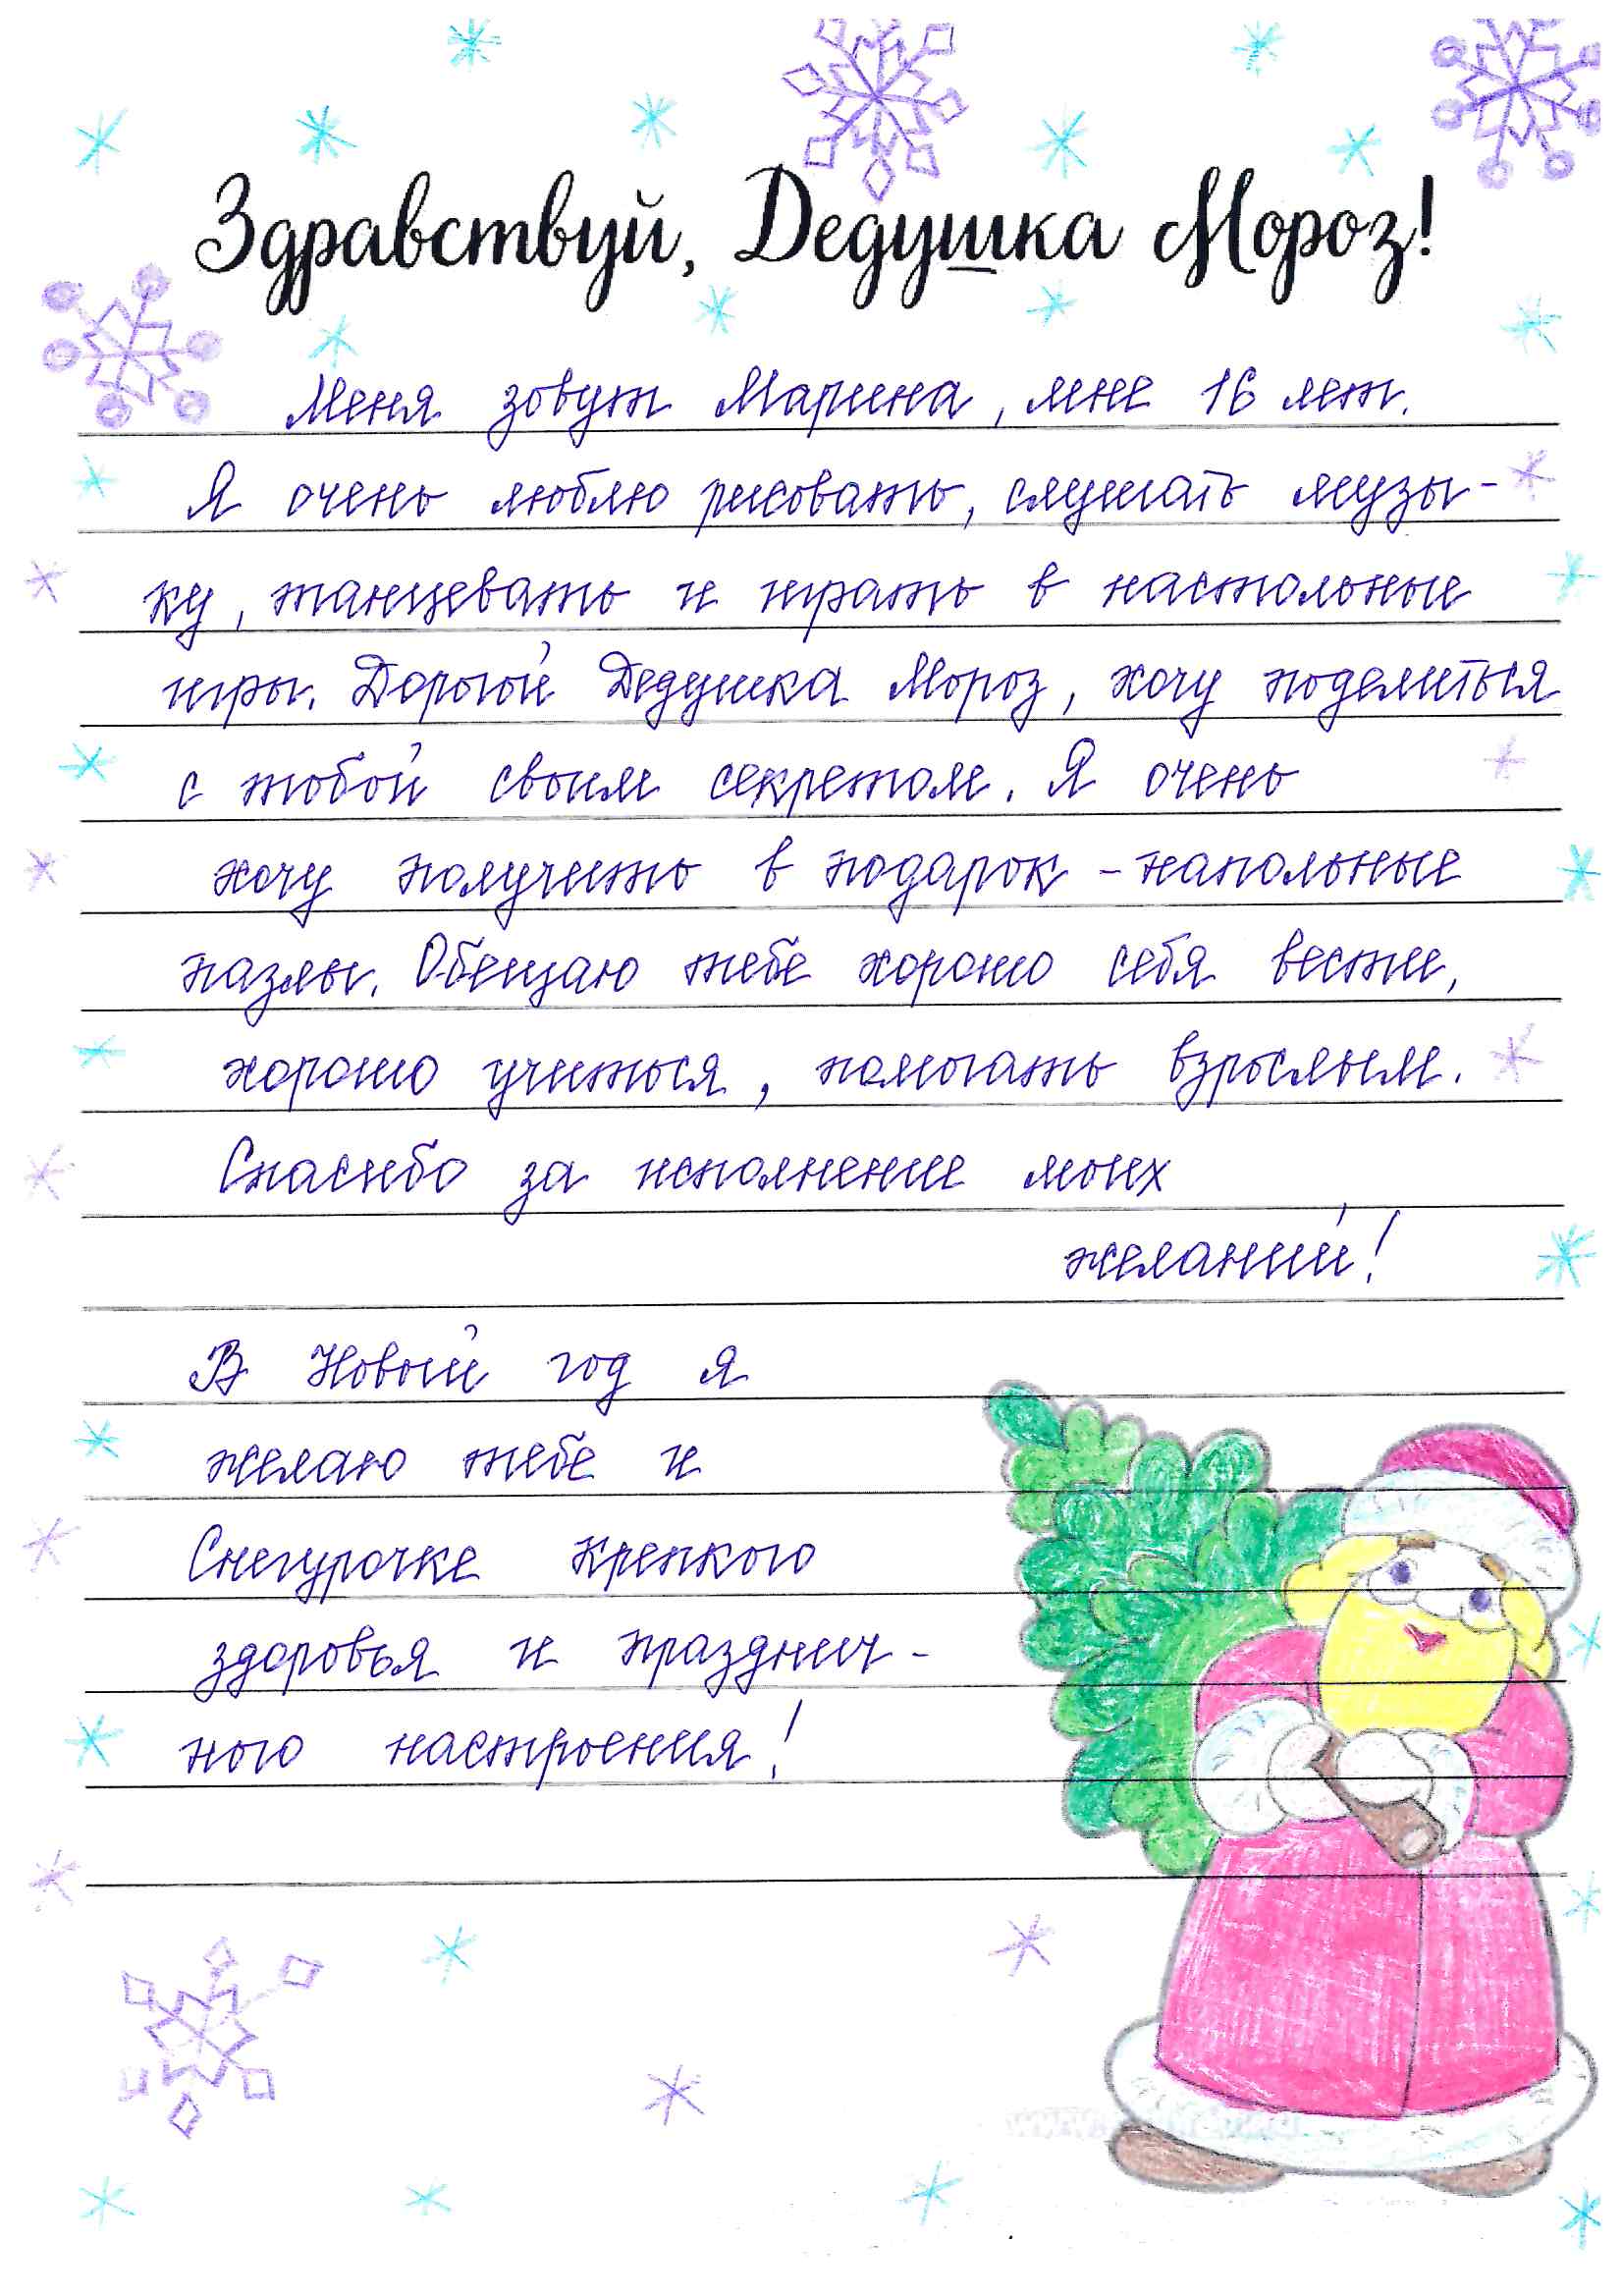 Здравствуй, Дедушка Мороз!
Меня зовут Марина, мне 16 лет.
Я очень люблю рисовать, слушать музы-
ку, танцевать и играть в настольные
игры. Дорогой Дедушка Мороз, хочу поделиться
с тобой своим секретом. Я очень
хочу получить в подарок - напольные
пазлы. Обещаю тебе хорошо себя вести,
хорошо учиться, помогать взрослым.
Спасибо за исполнение моих
желаний!
В Новый год я
желаю тебе и
Снегурочке крепкого
здоровья и празднич-
ного настроения!